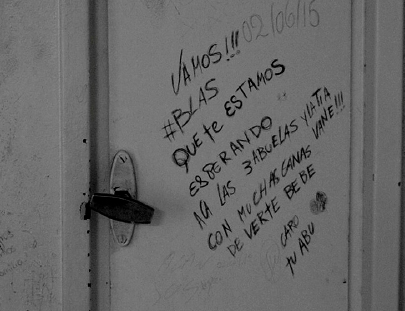 02/06/15
VAMOS!!!
#BLAS
QUE te ESTAMOS
ESPERANDO
ACA LAS 3 ABUELAS Y LA TIA
CON MUCHAS GANAS VANE!!!
DE VERTE BEBE
CARO
tu ABU